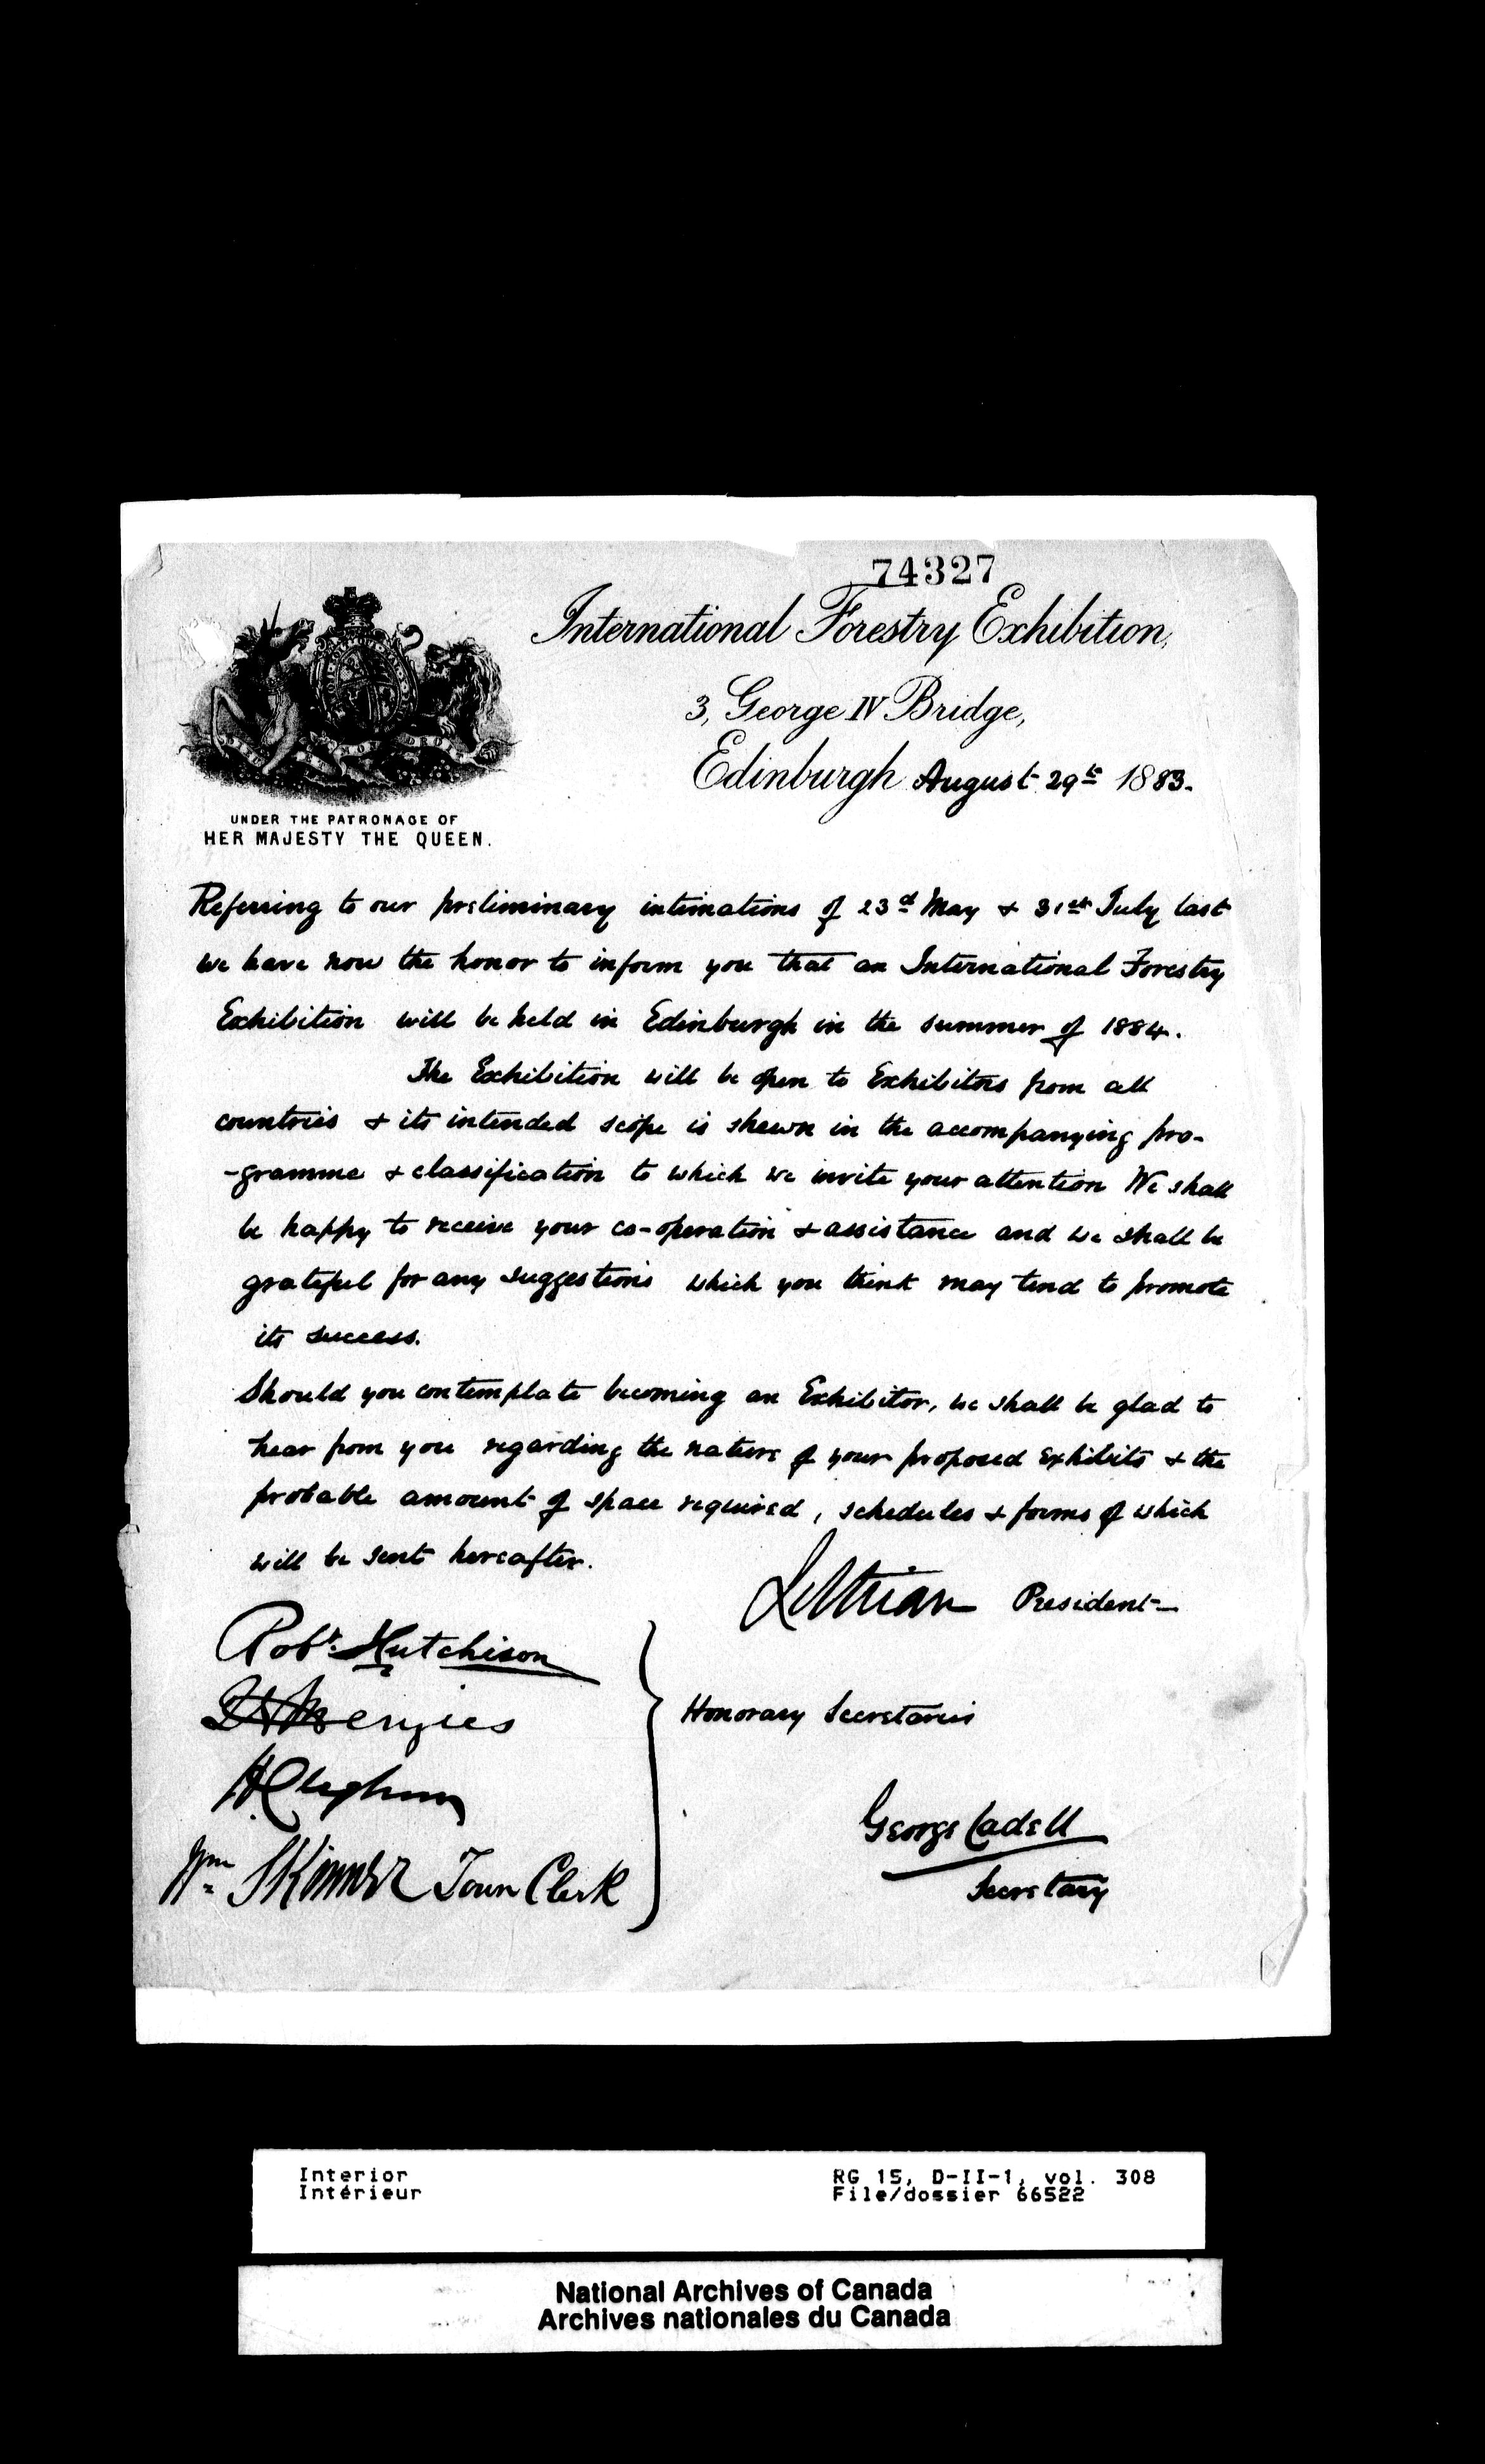 74327
International Forestry Exhibition,
3, George IV Bridge,
Edinburgh August 29th 1883.
UNDER THE PATRONAGE OF
HER MAJESTY THE QUEEN.
Referring to our preliminary intimations of 23d May & 31st July last
we have now the honor to inform you that an International Forestry
Exhibition will be held in Edinburgh in the summer of 1884.
The Exhibition will be open to Exhibitors from all
countries & its intended scope is shewn in the accompanying pro-
-gramme & classification to which we invite your attention We shall
be happy to receive your co-operation & assistance and we shall be
grateful for any suggestions which you think may tend to promote
its success.
Should you contemplate becoming an Exhibitor, we shall be glad to
hear from you regarding the nature of your proposed exhibits & the
probable amount of space required, schedules & forms of which
will be sent hereafter.
Lothian President
Robt. Hutchison
Menzies
Honorary Secretaries
H Cleghorn
George Cadell
Wm Skinner Town Clerk
Secretary
Interior
Intérieur
RG 15, D-II-1, vol. 308
File/dossier 66522
National Archives of Canada
Archives nationales du Canada